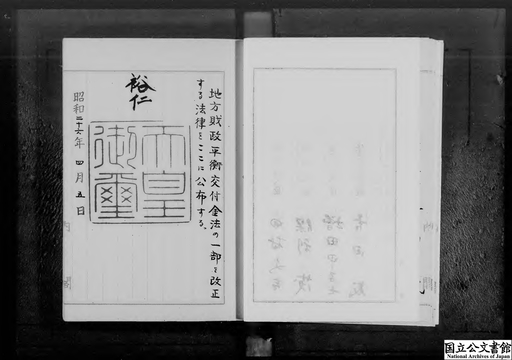 地方財政平衡交付金法の一部を改正
する法律をここに公布する。
裕仁
天皇
御璽
昭和二十六年四月五日
国立公文書館
National Archives of Japan